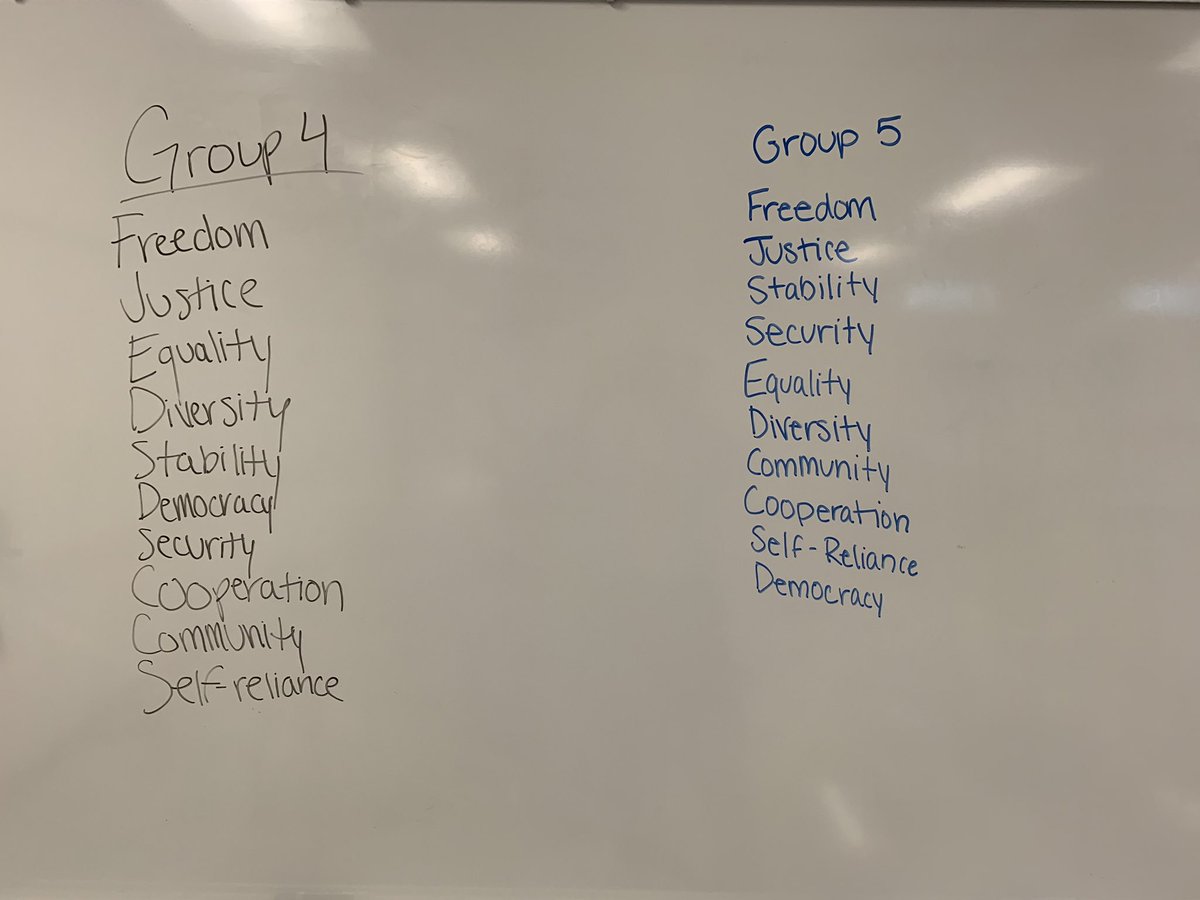 Group 4
Freedom
Justice
Equality
Diversity
Stability
Democracy
Security
Cooperation
Community
Self-reliance
Group 5
Freedom
Justice
Stability
Security
Equality
Diversity
Community
Cooperation
Self-Reliance
Democracy